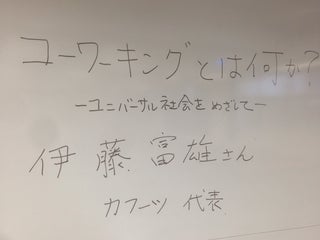 コーワーキングとは何か?
ーユニバーサル社会をめざしてー
伊藤富雄さん
カフーツ 代表